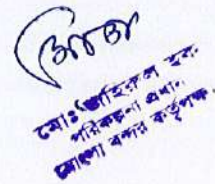 মোঃ জহিরুল হক
পরিকল্পনা প্রধান
মোংলা বন্দর কর্তৃপক্ষ।